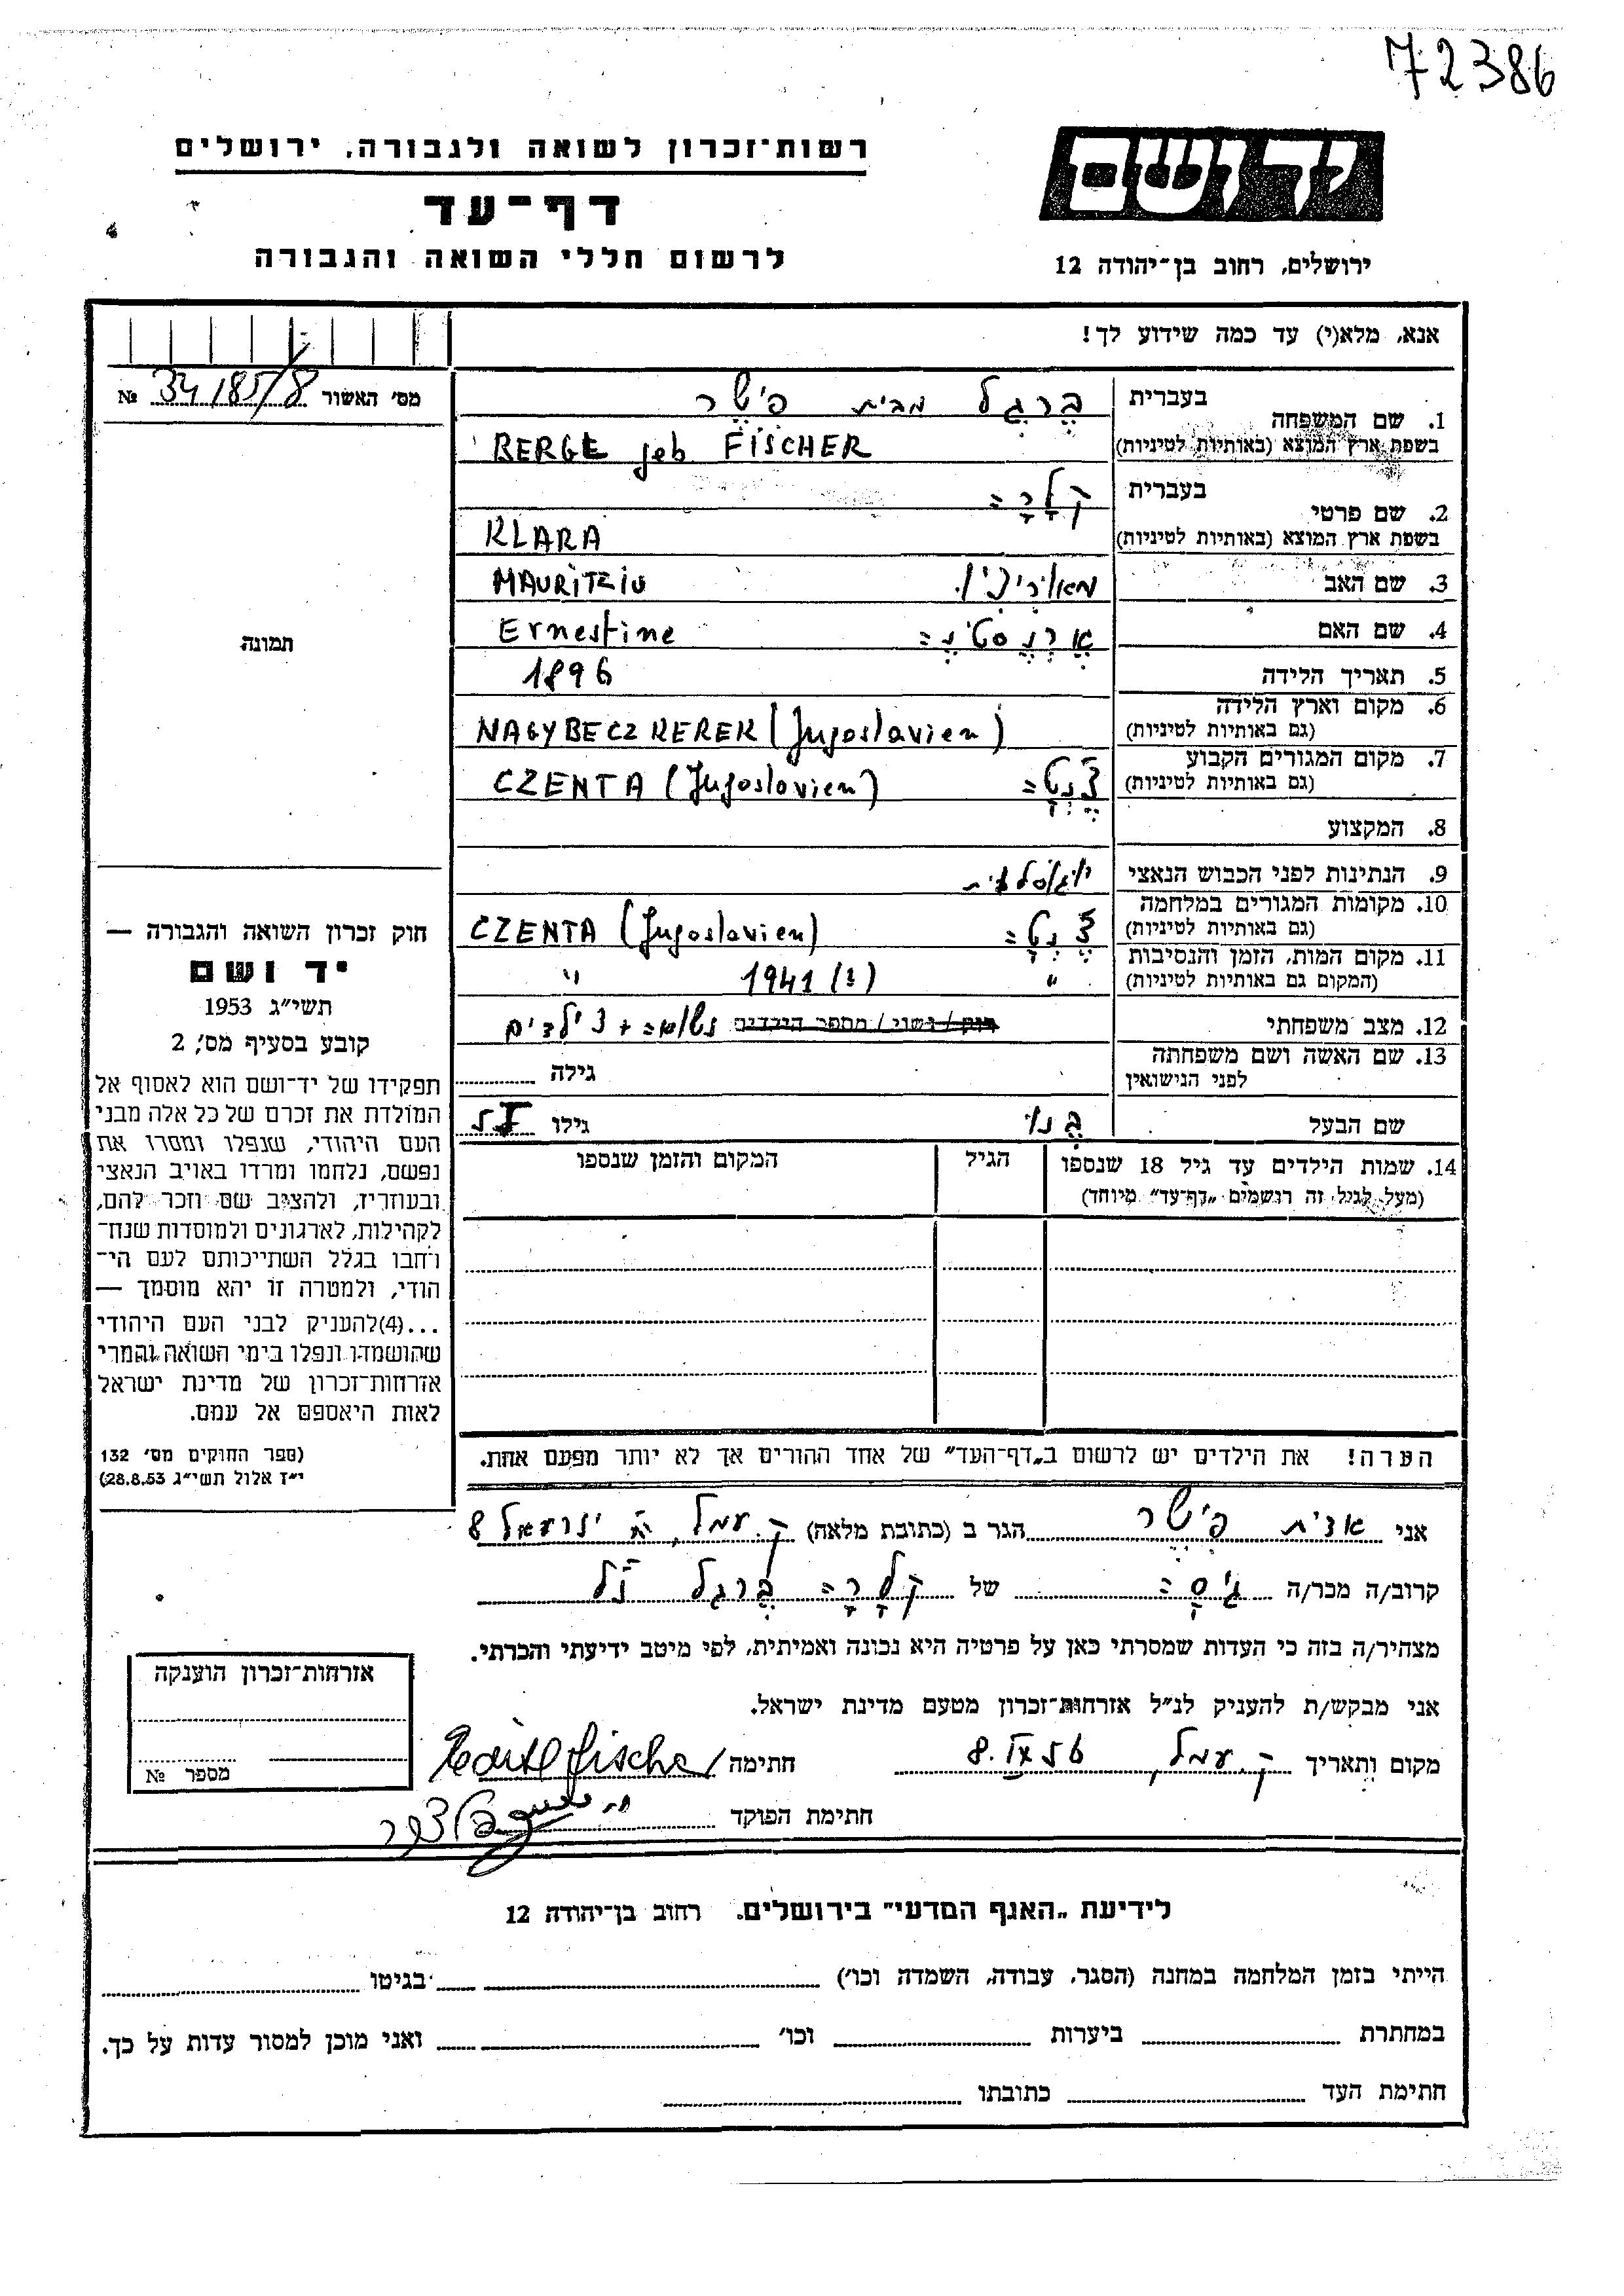 72386
רשות־זכרון לשואה ולגבורה, ירושלים
ידושם
דף־עד
לרשום חללי השואה והגבורה
ירושלים, רחוב בן־יהודה 12
אנא, מלא(י) עד כמה שידוע לך!
מס׳ האשור 34185/8 №
1. שם המשפחה
בעברית בֶּרְגֶל מבית פישֶׁר
בשפת ארץ המוצא (באותיות לטיניות) BERGE geb FISCHER
2. שם פרטי
בעברית קְלָרָה
בשפת ארץ המוצא (באותיות לטיניות) KLARA
3. שם האב MAURITZIU
4. שם האם אֶרְנֶסטינֶה Ernestine
5. תאריך הלידה 1896
6. מקום וארץ הלידה
(גם באותיות לטיניות) NAGYBECZKEREK (Jugoslavien)
7. מקום המגורים הקבוע
(גם באותיות לטיניות) צֶנְטָה CZENTA (Jugoslavien)
8. המקצוע
9. הנתינות לפני הכבוש הנאצי יוגוסלבית
10. מקומות המגורים במלחמה
(גם באותיות לטיניות) צֶנְטָה CZENTA (Jugoslavien)
11. מקום המות, הזמן והנסיבות
(המקום גם באותיות לטיניות) " 1941 (?) "
12. מצב משפחתי רוק / נשוי / מספר הילדים נשואה + 3 ילדים
13. שם האשה ושם משפחתה
לפני הנישואין גילה
שם הבעל גילו
14. שמות הילדים עד גיל 18 שנספו
(מעל לגיל זה רושמים „דף־עד״ מיוחד)
הגיל
המקום והזמן שנספו
הערה! את הילדים יש לרשום ב„דף־העד״ של אחד ההורים אך לא יותר מפעם אחת.
תמונה
חוק זכרון השואה והגבורה —
יד ושם
תשי״ג 1953
קובע בסעיף מס׳, 2
תפקידו של יד־ושם הוא לאסוף אל
המולדת את זכרם של כל אלה מבני
העם היהודי, שנפלו ומסרו את
נפשם, נלחמו ומרדו באויב הנאצי
ובעוזריו, ולהציב שם וזכר להם,
לקהילות, לארגונים ולמוסדות שנח־
רחבו בגלל השתייכותם לעם הי־
הודי, ולמטרה זו יהא מוסמך —
...(4)להעניק לבני העם היהודי
שהושמדו ונפלו בימי השואה והמרי
אזרחות־זכרון של מדינת ישראל
לאות היאספם אל עמם.
(ספר החוקים מס׳ 132
י״ז אלול תשי״ג 28.8.53)
אני אדית פישֶׁר הגר ב (כתובת מלאה) ק. עמל, יזרעאל 8
קרוב/ה מכר/ה גיסָה של קְלָרָה בֶּרְגֶל ז״ל
מצהיר/ה בזה כי העדות שמסרתי כאן על פרטיה היא נכונה ואמיתית, לפי מיטב ידיעתי והכרתי.
אני מבקש/ת להעניק לנ״ל אזרחות־זכרון מטעם מדינת ישראל.
מקום ותאריך ק. עמל, 8. חתימה Edith Fischer
חתימת הפוקד
אזרחות־זכרון הוענקה
מספר №
לידיעת „האגף המדעי״ בירושלים. רחוב בן־יהודה 12
הייתי בזמן המלחמה במחנה (הסגר, עבודה, השמדה וכו׳) בגיטו
במחתרת ביערות וכו׳ ואני מוכן למסור עדות על כך.
חתימת העד כתובתו